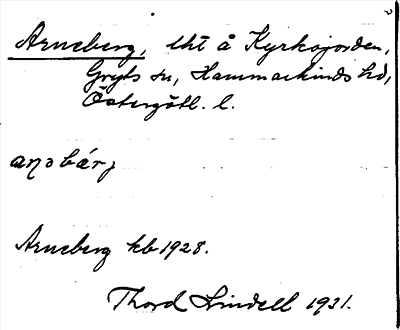 Arneberg, lht å Kyrkojorden,
Gryts sn, Hammarkinds hd,
Östergötl. l.
aṇəbárj
Arneberg kb 1928.
Thord Lindell 1931.